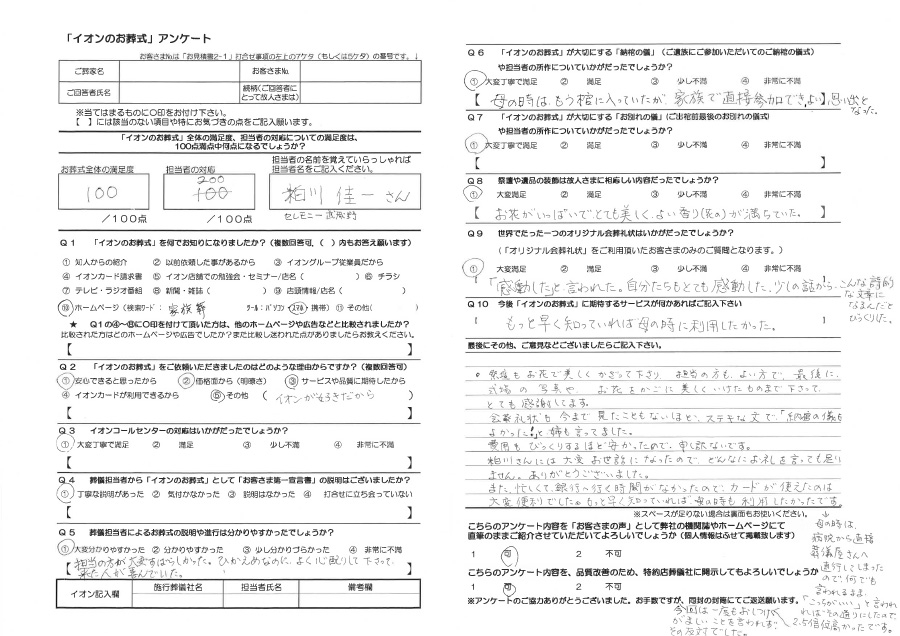 「イオンのお葬式」アンケート
お客さまNo.は「お見積書2-1」打合せ事項の左上の7ケタ（もしくは5ケタ）の番号です。↓
ご葬家名
お客さまNo.
ご回答者氏名
続柄(ご回答者にとって故人さまは)
※当てはまるものに○印をお付け下さい。
【　】には該当のない項目や特にお気づきの点をご記入願います。
「イオンのお葬式」全体の満足度、担当者の対応についての満足度は、
100点満点中何点になるでしょうか？
お葬式全体の満足度
担当者の対応
担当者の名前を覚えていらっしゃれば
担当者名をご記入ください。
100
200
100
粕川 佳一 さん
／100点
／100点
セレモニー武蔵野
Q１　「イオンのお葬式」を何でお知りになりましたか？（複数回答可、（　）内もお答え願います）
① 知人からの紹介　② 以前依頼した事があるから　③ イオングループ従業員だから
④ イオンカード請求書　⑤ イオン店舗での勉強会・セミナー/店名（　）⑥ チラシ
⑦ テレビ・ラジオ番組　⑧ 新聞・雑誌（　）⑨ 店頭情報/店名（　）
⑩ ホームページ（検索ワード：家族葬　ツール：パソコン・スマホ・携帯）⑪ その他（　）
比較された方はどのホームページや広告でしたか？また比較し迷われた点がありましたらお教えください。
【　】
Q２　「イオンのお葬式」をご依頼いただきましたのはどのような理由からですか？（複数回答可）
① 安心できると思ったから　② 価格面から（明瞭さ）　③ サービスや品質に期待したから
④ イオンカードが利用できるから　⑤ その他（イオンがすきだから　）
【　】
Q３　イオンコールセンターの対応はいかがだったでしょうか？
① 大変丁寧で満足　② 満足　③ 少し不満　④ 非常に不満
【　】
Q４　葬儀担当者から「イオンのお葬式」として「お客さま第一宣言書」の説明はございましたか？
① 丁寧な説明があった　② 気付かなかった　③ 説明はなかった　④ 打合せに立ち会っていない
【　】
Q５　葬儀担当者によるお葬式の説明や進行は分かりやすかったでしょうか？
① 大変分かりやすかった　② 分かりやすかった　③ 少し分かりづらかった　④ 非常に不満
【担当の方が大変すばらしかった。ひかえめなのに、よく心配りして下さって、
来た人が喜んでいた。】
イオン記入欄
施行葬儀社名
担当者氏名
備考欄
Q６　「イオンのお葬式」が大切にする「納棺の儀」（ご遺族にご参加いただいてのご納棺の儀式）
や担当者の所作についていかがだったでしょうか？
① 大変丁寧で満足　② 満足　③ 少し不満　④ 非常に不満
【母の時は、もう棺に入っていたが、家族で直接参加できよい】思い出と
なった。
Q７　「イオンのお葬式」が大切にする「お別れの儀」（ご出棺前最後のお別れの儀式）
や担当者の所作についていかがだったでしょうか？
① 大変丁寧で満足　② 満足　③ 少し不満　④ 非常に不満
【　】
Q８　祭壇や品目の装飾は故人さまに相応しい内容だったでしょうか？
① 大変満足　② 満足　③ 少し不満　④ 非常に不満
【お花がいっぱいでとても美しく、よい香り(花の)が満ちていた。】
Q９　世界でたった一つのオリジナル会葬礼状はいかがだったでしょうか？
（「オリジナル会葬礼状」をご利用頂いたお客さまのみのご質問となります。）
① 大変満足　② 満足　③ 少し不満　④ 非常に不満
【「感動した」と言われた。自分たちもとても感動した。少しの話から、こんな詩的
な文章に
なるんだと
びっくりした。
Q10　今後「イオンのお葬式」に期待するサービスが何かあればご記入下さい
【もっと早く知っていれば母の時に利用したかった。
最後にその他、ご意見などございましたらご記入下さい。
○ 祭壇もお花で美しくかざって下さり、担当の方も、よい方で、最後に、
式場の写真や、お花をかごに美しくいけたものまで下さって、
とても感謝してます。
会葬礼状も今まで見たこともないほど、ステキな文で、「納棺の儀も
よかった！」と姉も言ってました。
費用もびっくりするほど安かったので、申し訳ないです。
粕川さんには大変お世話になったので、どんなにお礼を言っても足り
ません。ありがとうございました。
また、忙しくて銀行へ行く時間がなかったので、カードが使えたのは
大変便利でした。もっと早く知っていれば、母の時も利用したかったです。
※スペースが足りない場合は裏面もお使いください。
こちらのアンケート内容を「お客さまの声」として弊社の機関誌やホームページにて
直筆のままご紹介させていただいてよろしいでしょうか（個人情報はふせて掲載致します）
1　可　2　不可
こちらのアンケート内容を、品質改善のため、特約店葬儀社に開示してもよろしいでしょうか
1　可　2　不可
※アンケートのご協力ありがとうございました。お手数ですが、同封の封筒にてご返送願います。
↓
母の時は、
病院から直接
葬儀屋さんへ
直行してしまった
ので、何でも
言われるまま、
「こっちがいい」と言われ
ればその通りにしたので、
2.5倍位高かったです。
今回は一度もおしつけ
がましいことを言われず、
その反対でした。